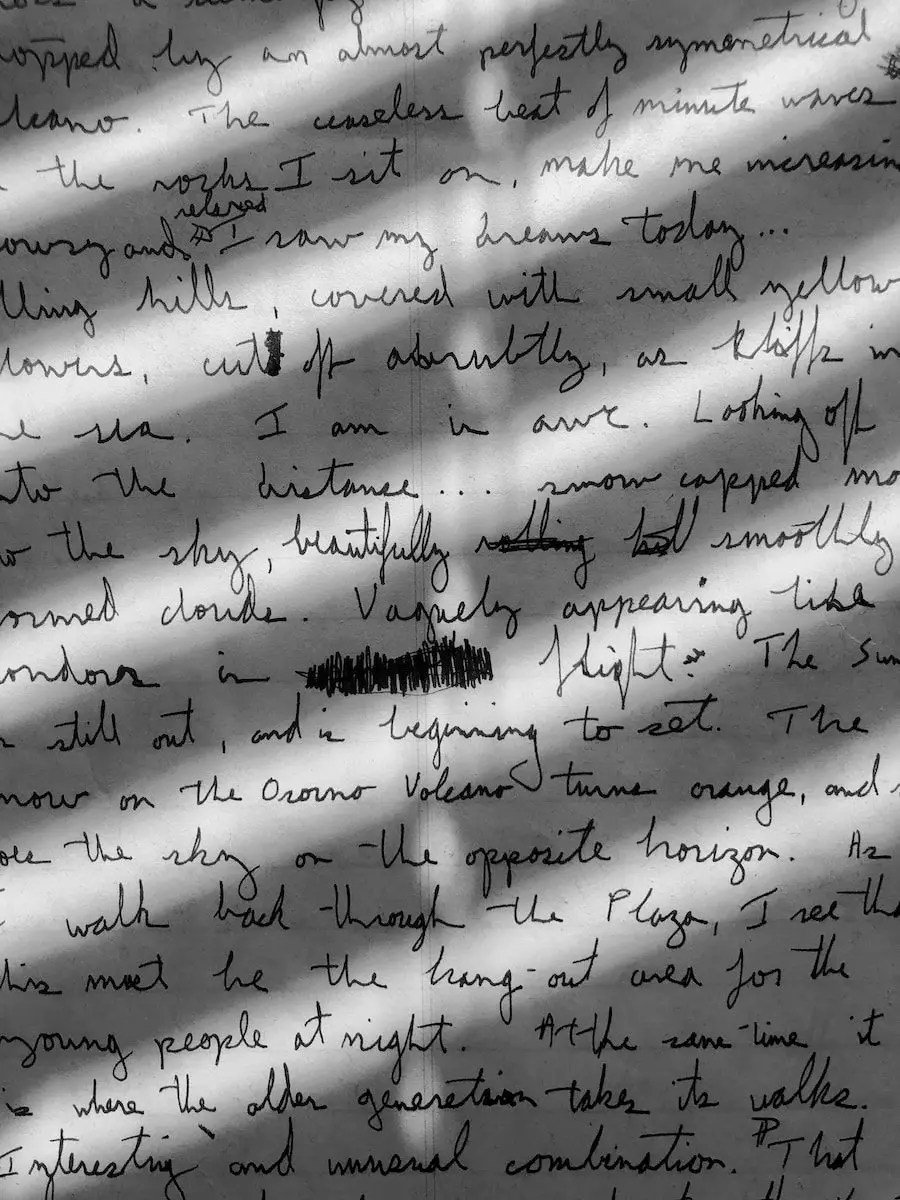 topped by an almost perfectly symmetrical
lcano. The ceaseless beat of minute waves
the rocks I sit on, make me increasin
relaxed
owsy and I saw my dreams today...
lling hills, covered with small yellow
lowers, cut off abrubtly, as kliffs in
e sea. I am in awe. Looking off
nto the distance... snow capped mo
o the sky, beautifully smoothly
ormed clouds. Vaguely appearing like
ondors in flight. The Sun
still out, and is beginning to set. The
now on the Osorno Volcano turns orange, and
oes the sky on the opposite horizon. As
I walk back through the Plaza, I see tha
this must be the hang-out area for the
young people at night. At the same time it
is where the older generation takes its walks.
Interesting and unusual combination. That